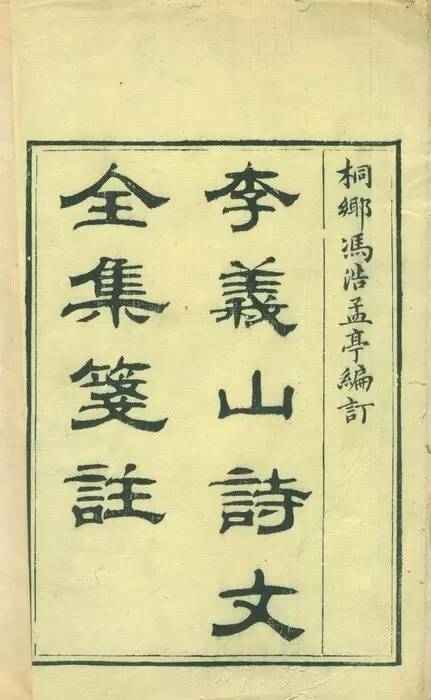 桐鄉馮浩孟亭編訂
李義山詩文
全集箋註